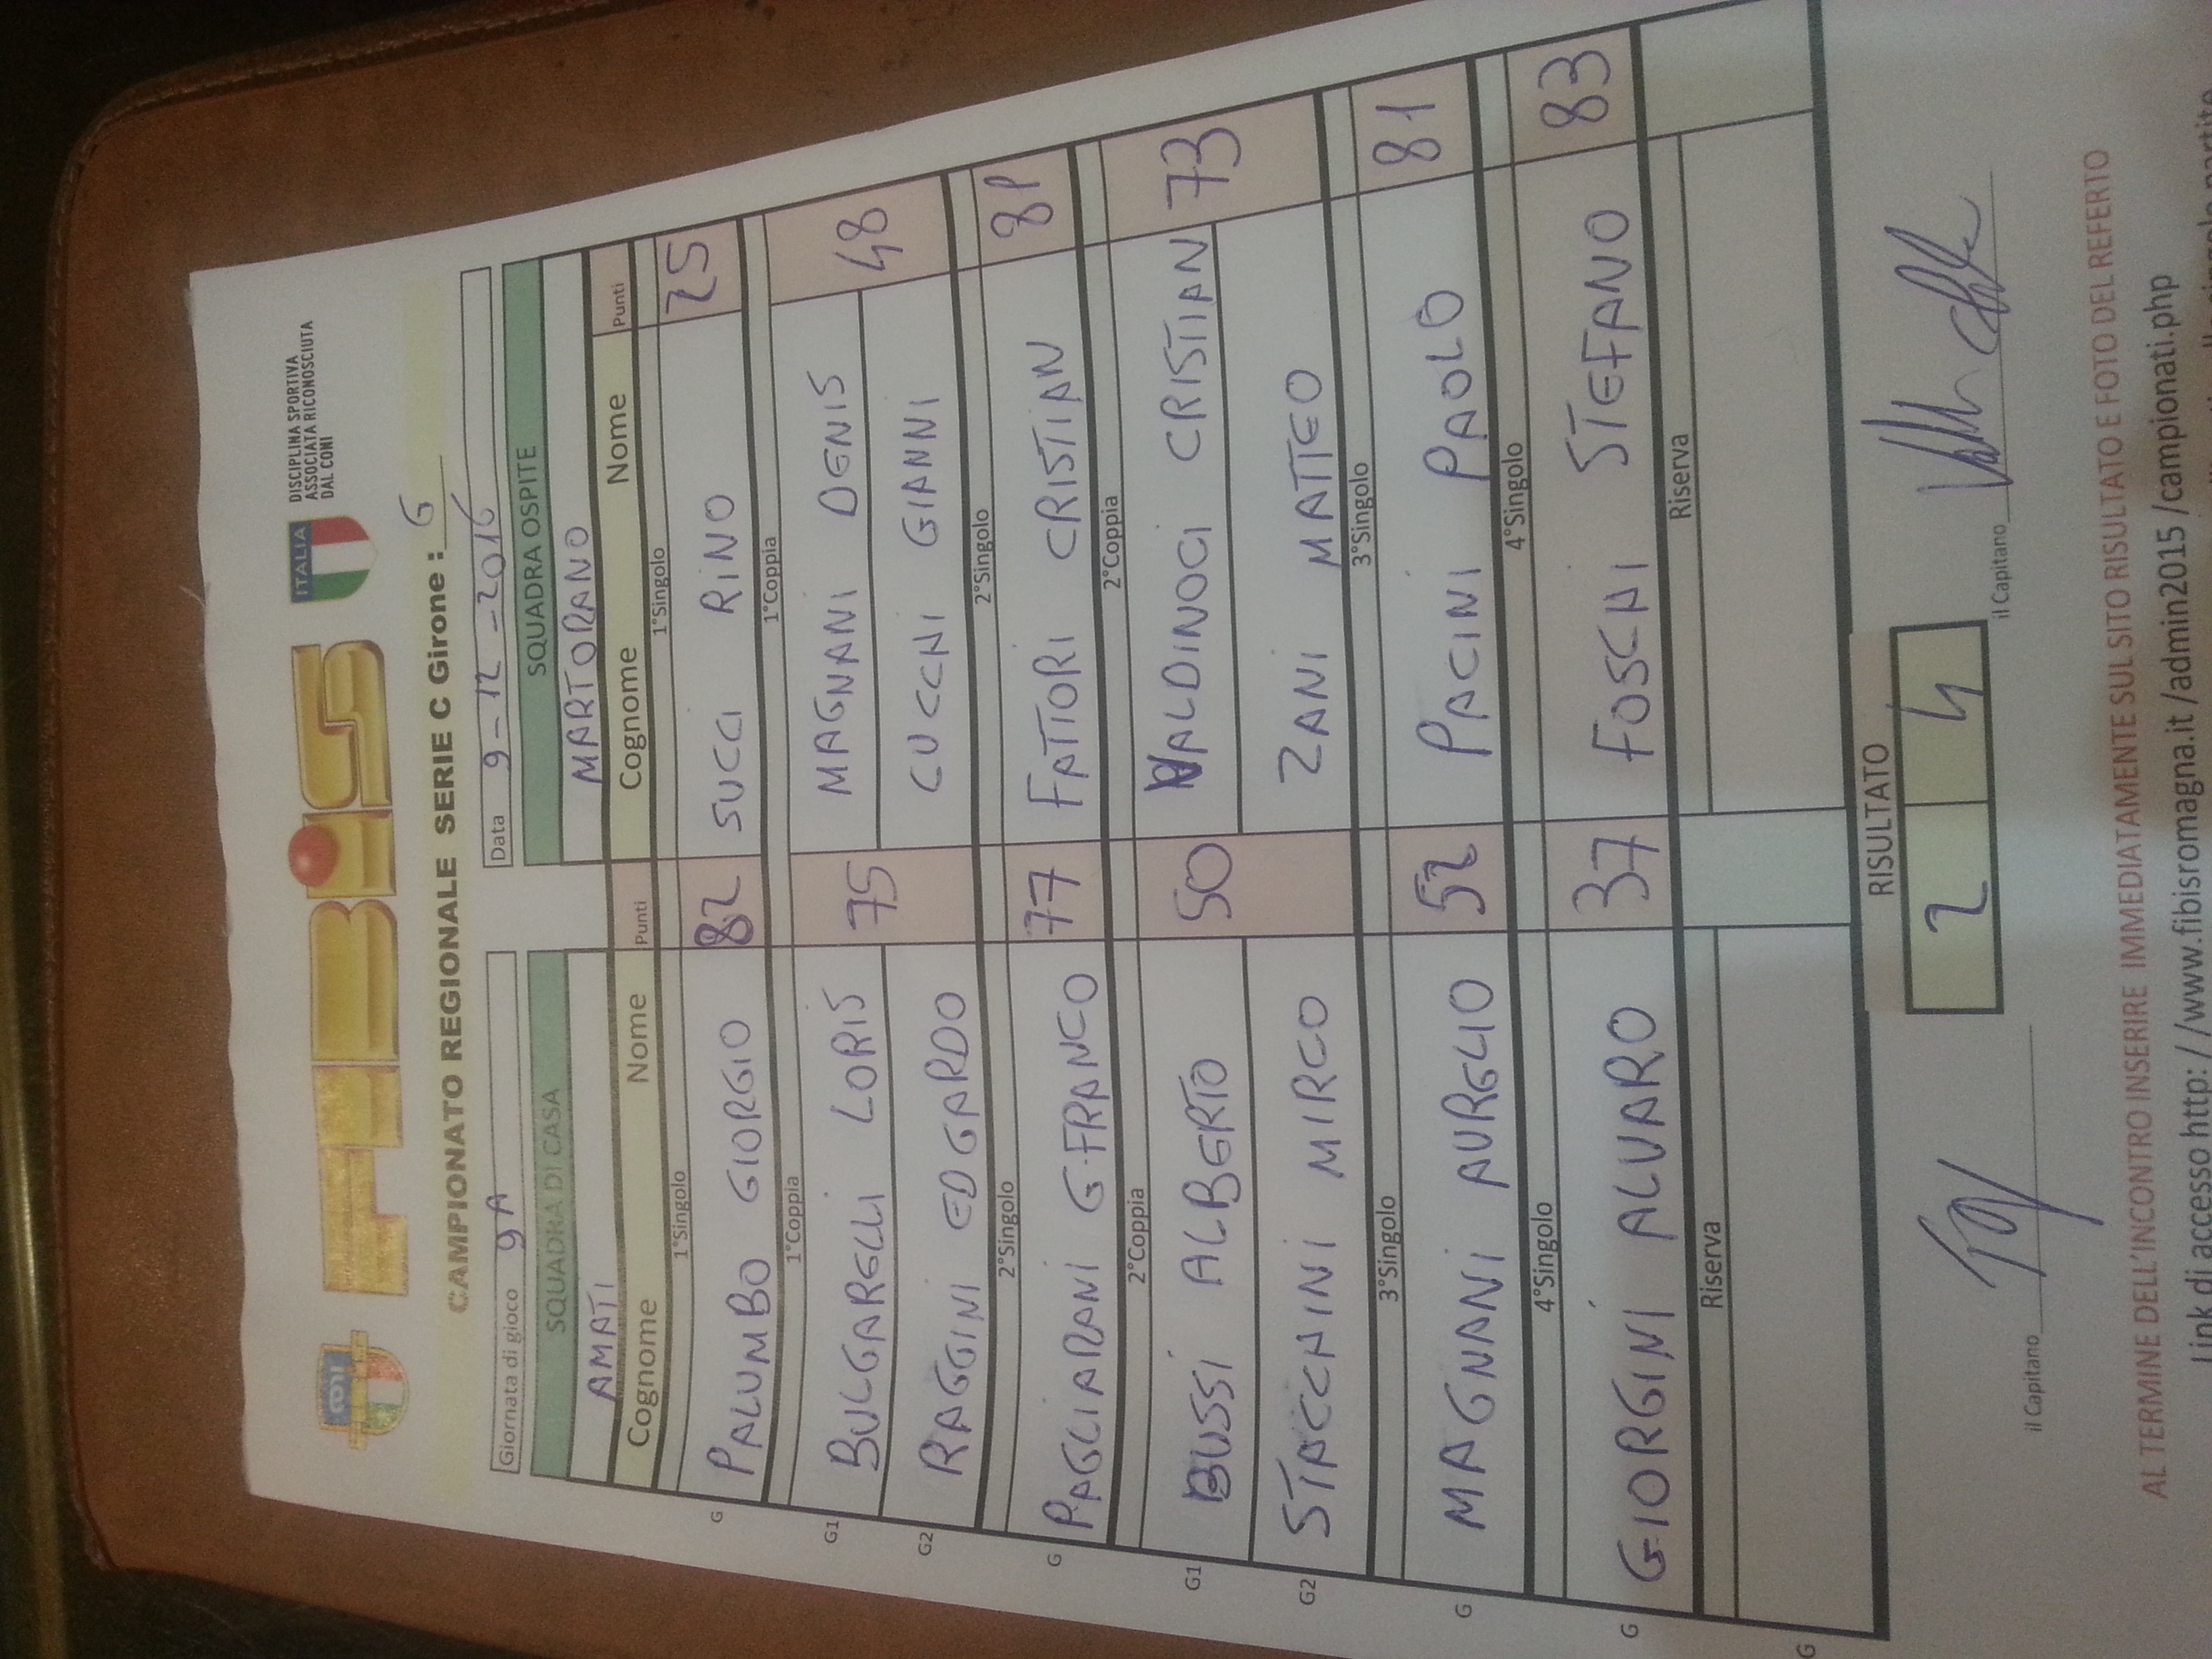 CONI FIBIS ITALIA DISCIPLINA SPORTIVA
ASSOCIATA RICONOSCIUTA
DAL CONI
CAMPIONATO REGIONALE SERIE C Girone : G
Giornata di gioco 9A Data 9-12-2016
SQUADRA DI CASA SQUADRA OSPITE
AMATI MARTORANO
Cognome Nome Punti Cognome Nome Punti
1°Singolo 1°Singolo
G PALUMBO GIORGIO 82 SUCCI RINO 25
1°Coppia 1°Coppia
G1 BULGARELLI LORIS 75 MAGNANI DENIS 48
G2 RAGGINI EDGARDO CUCCHI GIANNI
2°Singolo 2°Singolo
G PAGLIARANI G.FRANCO 77 FATTORI CRISTIAN 81
2°Coppia 2°Coppia
G1 BUSSI ALBERTO 50 VALDINOCI CRISTIAN 73
G2 STACCHINI MIRCO ZANI MATTEO
3°Singolo 3°Singolo
G MAGNANI AURELIO 52 PACINI PAOLO 81
4°Singolo 4°Singolo
G GIORGINI ALVARO 37 FOSCHI STEFANO 83
Riserva Riserva
G
RISULTATO
2 4
il Capitano il Capitano
AL TERMINE DELL'INCONTRO INSERIRE IMMEDIATAMENTE SUL SITO RISULTATO E FOTO DEL REFERTO
Link di accesso http: / /www.fibisromagna.it /admin2015 /campionati.php